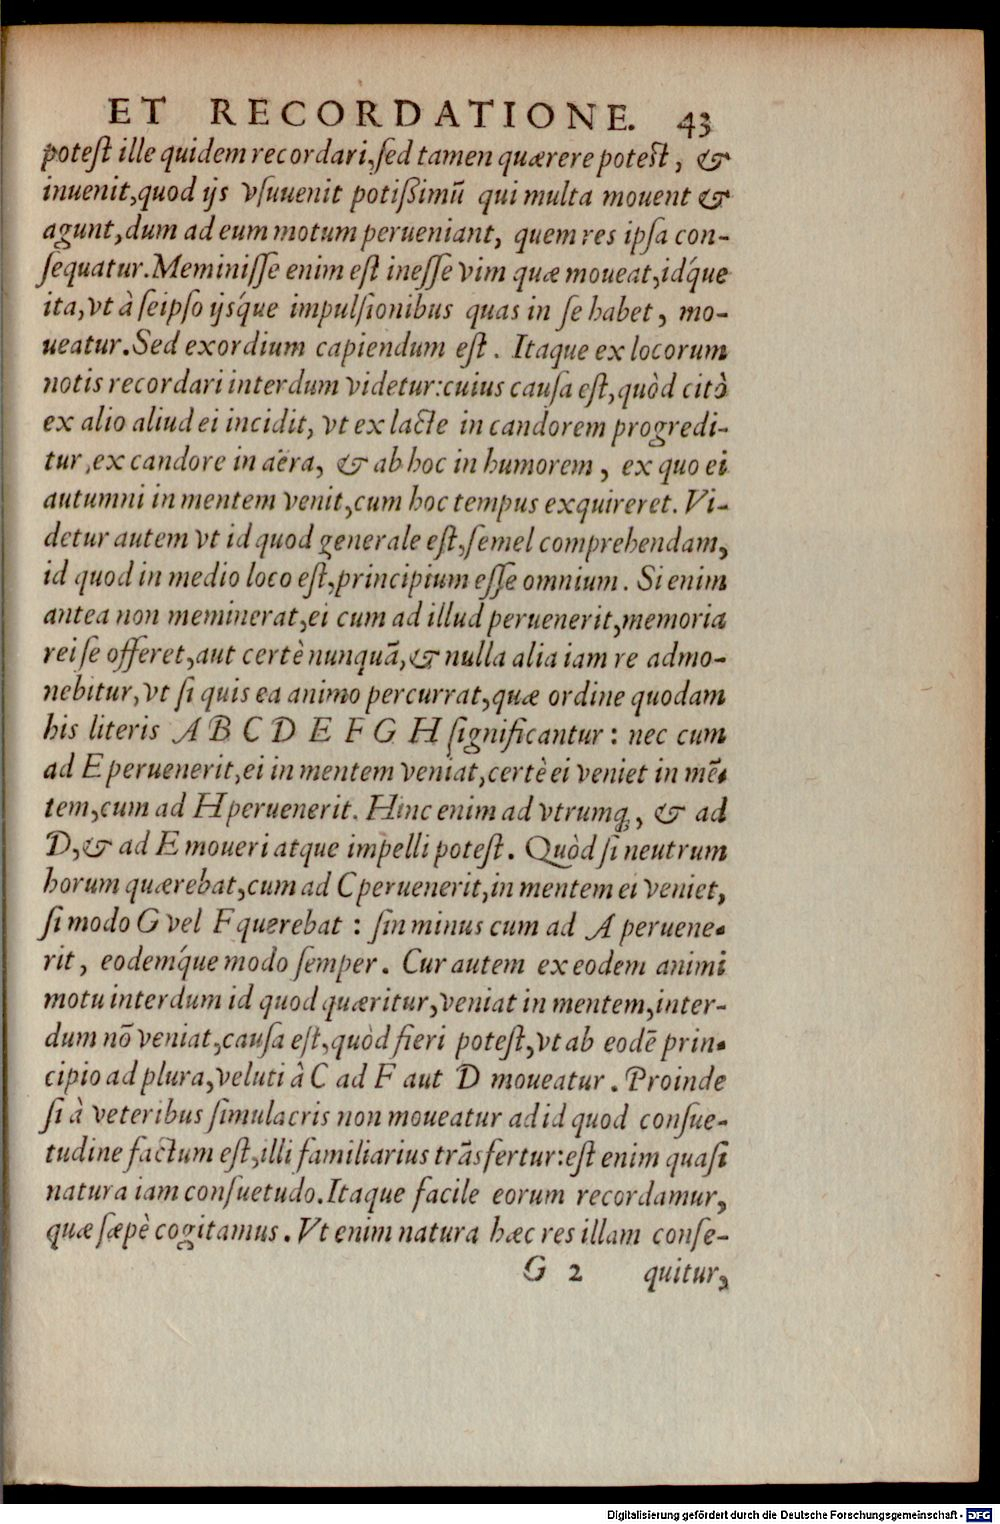 ET RECORDATIONE. 43
poteſt ille quidem recordari, ſed tamen quærere poteſt, &
inuenit, quod ijs vſuuenit potiſsimũ qui multa mouent &
agunt, dum ad eum motum perueniant, quem res ipſa con-
ſequatur. Meminiſſe enim eſt ineſſe vim quæ moueat, idq́ue
ita, vt à ſeipſo ijsq́ue impulſionibus quas in ſe habet, mo-
ueatur. Sed exordium capiendum eſt. Itaque ex locorum
notis recordari interdum videtur: cuius cauſa eſt, quòd citò
ex alio aliud ei incidit, vt ex lacte in candorem progredi-
tur, ex candore in aëra, & ab hoc in humorem, ex quo ei
autumni in mentem venit, cum hoc tempus exquireret. Vi-
detur autem vt id quod generale eſt, ſemel comprehendam,
id quod in medio loco eſt, principium eſſe omnium. Si enim
antea non meminerat, ei cum ad illud peruenerit, memoria
rei ſe offeret, aut certè nunquã, & nulla alia iam re admo-
nebitur, vt ſi quis ea animo percurrat, quæ ordine quodam
his literis A B C D E F G H ſignificantur: nec cum
ad E peruenerit, ei in mentem veniat, certè ei veniet in mẽ-
tem, cum ad H peruenerit. Hinc enim ad vtrumq;, & ad
D, & ad E moueri atque impelli poteſt. Quòd ſi neutrum
horum quærebat, cum ad C peruenerit, in mentem ei veniet,
ſi modo G vel F querebat: ſin minus cum ad A peruene-
rit, eodemq́ue modo ſemper. Cur autem ex eodem animi
motu interdum id quod quæritur, veniat in mentem, inter-
dum nõ veniat, cauſa eſt, quòd fieri poteſt, vt ab eodẽ prin-
cipio ad plura, veluti à C ad F aut D moueatur. Proinde
ſi à veteribus ſimulacris non moueatur ad id quod conſue-
tudine factum eſt, illi familiarius trãsfertur: eſt enim quaſi
natura iam conſuetudo. Itaque facile eorum recordamur,
quæ ſæpè cogitamus. Vt enim natura hæc res illam conſe-
G 2 quitur,
Digitalisierung gefördert durch die Deutsche Forschungsgemeinschaft - DFG